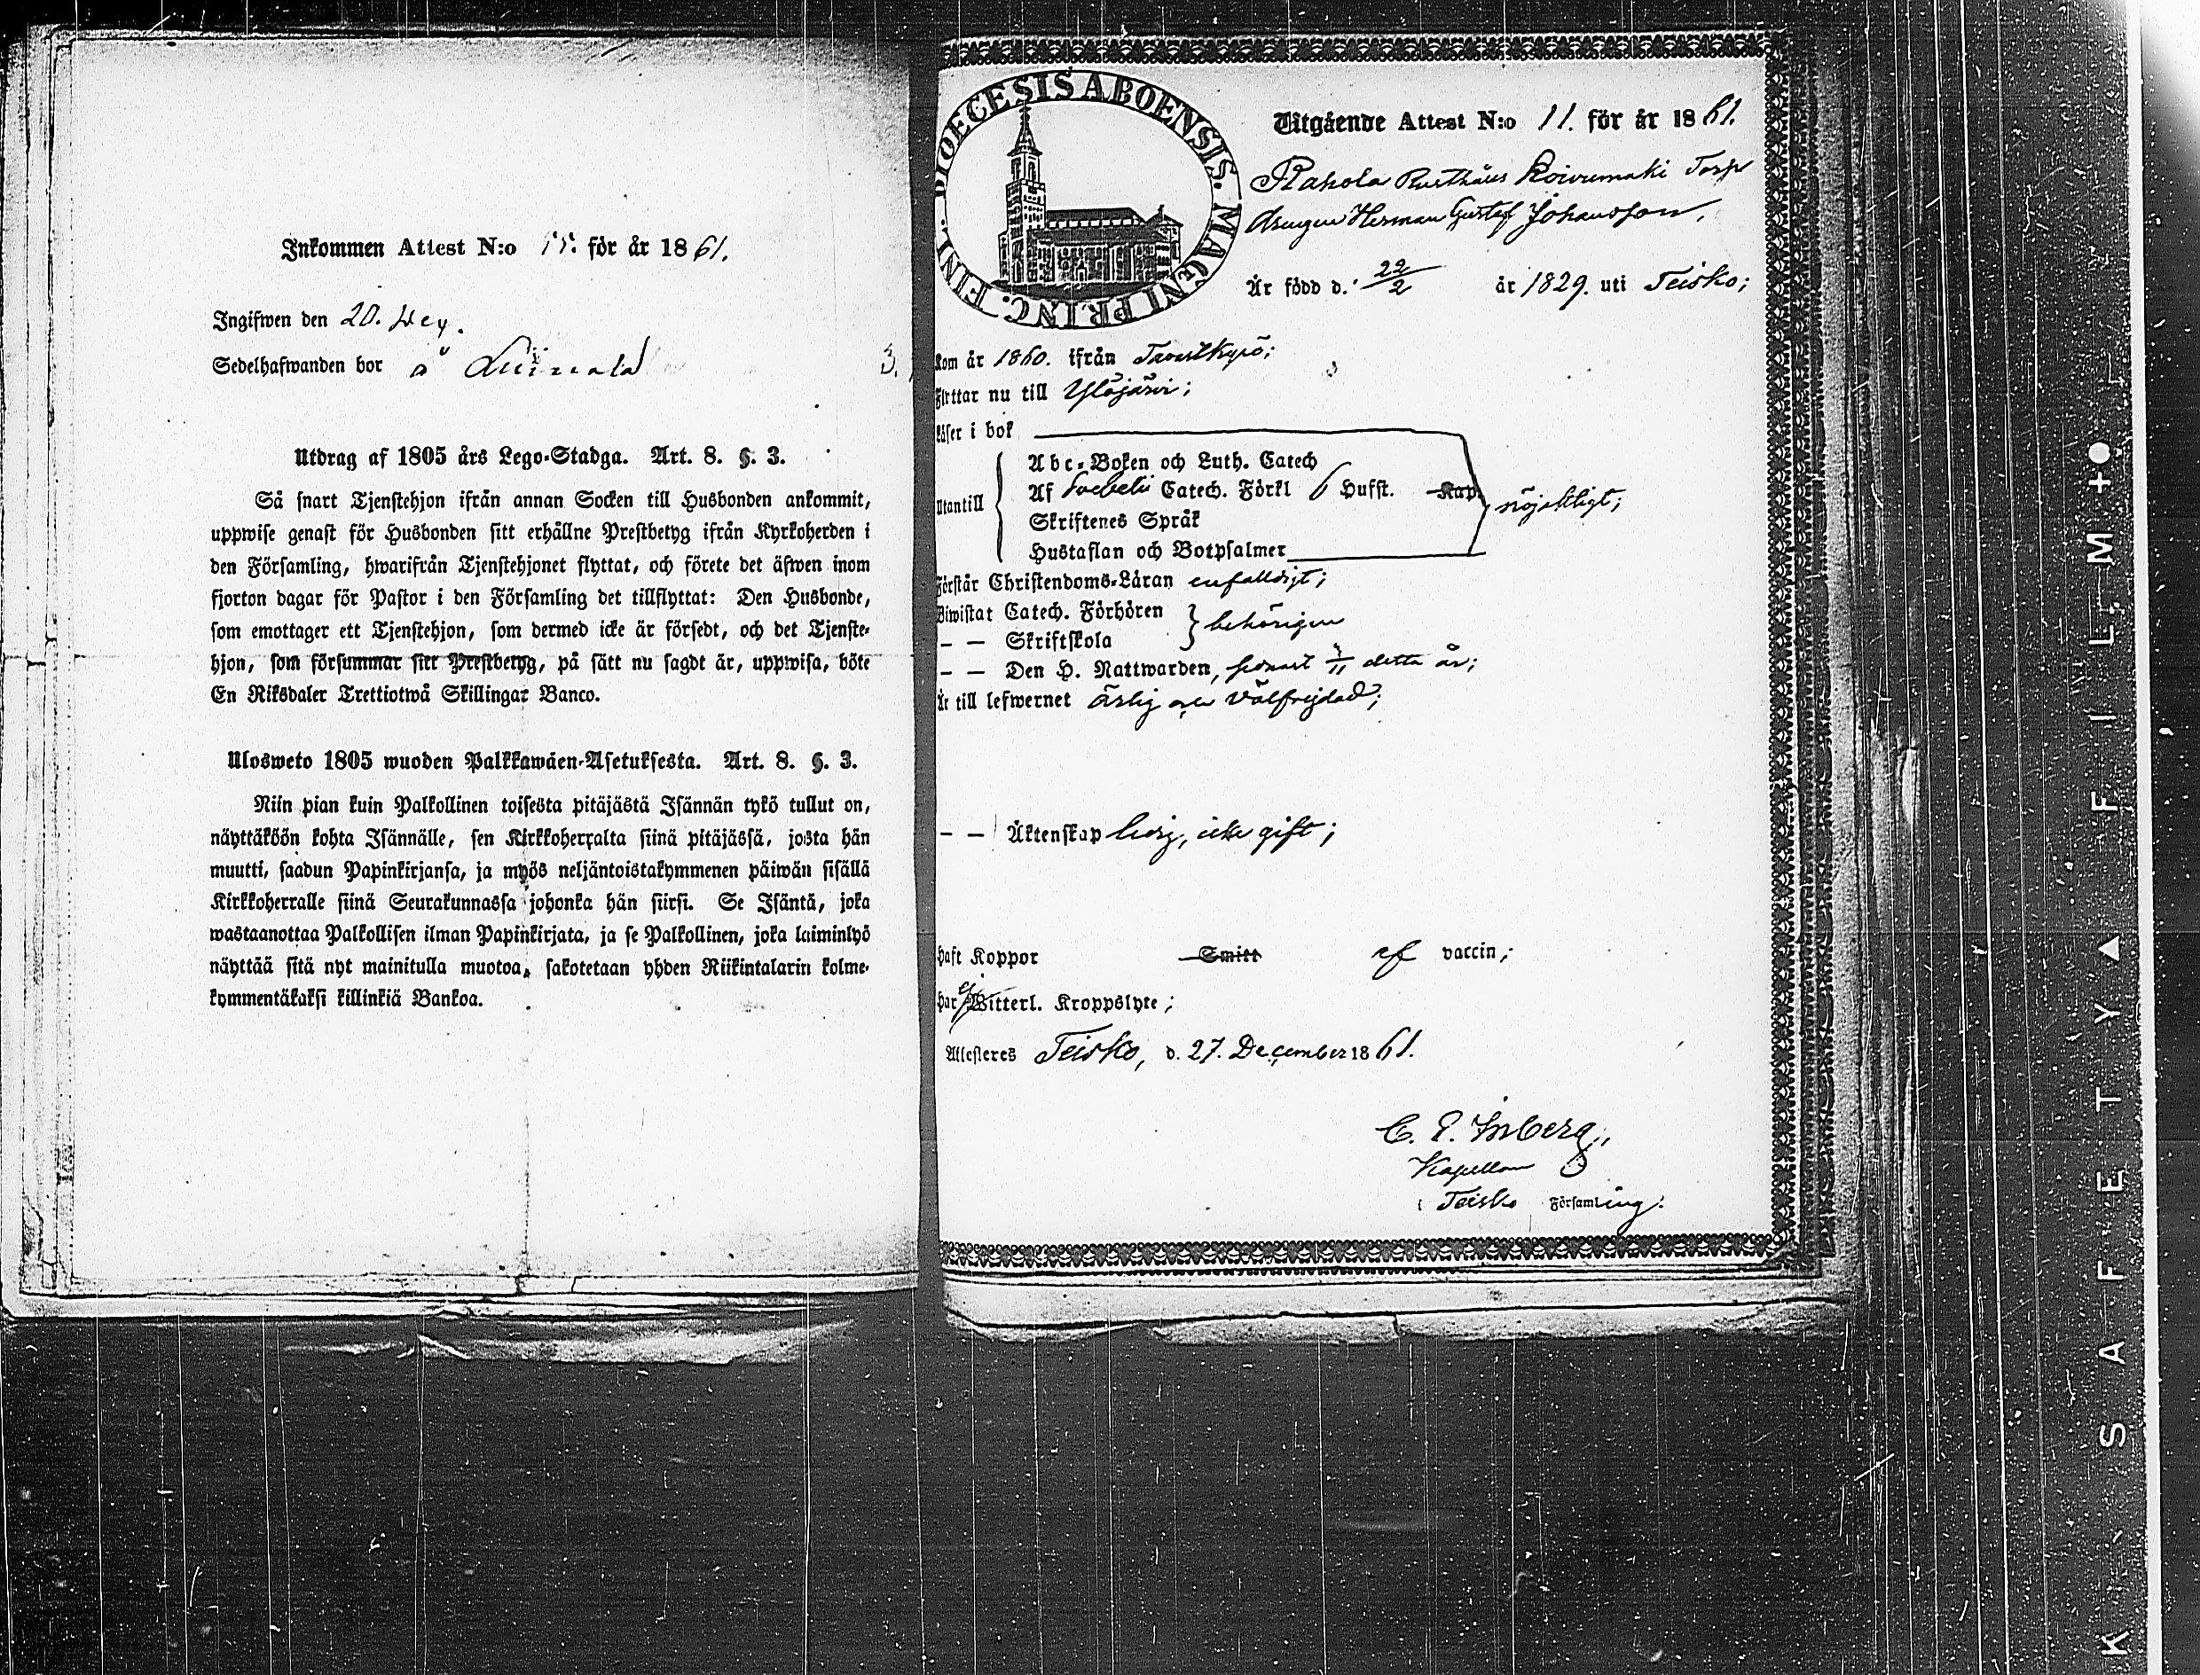 Inkommen Attest N:o för år 1861.
Ingifwen den 20.
Sedelhafwanden bor å
Utdrag af 1805 års Lego-Stadga. Art. 8. §. 3.
Så snart Tjenstehjon ifrån annan Socken till Husbonden ankommit,
uppwise genast för Husbonden sitt erhållne Prestbetyg ifrån Kyrkoherden i
den Församling, hwarifrån Tjenstehjonet flyttat, och förete det äfwen inom
fjorton dagar för Pastor i den Församling det tillflyttat: Den Husbonde,
som emottager ett Tjenstehjon, som dermed icke är försedt, och det Tjenste-
hjon, som försummar sitt Prestbetyg, på sätt nu sagdt är, uppwisa, böte
En Riksdaler Trettiotwå Skillingar Banco.
Ulosweto 1805 wuoden Palkkawäen-Asetuksesta. Art. 8. §. 3.
Niin pian kuin Palkollinen toisesta pitäjästä Isännän tykö tullut on,
näyttäköön kohta Isännälle, sen Kirkkoherralta siinä pitäjässä, josta hän
muutti, saadun Papinkirjansa, ja myös neljäntoistakymmenen päiwän sisällä
Kirkkoherralle siinä Seurakunnassa johonka hän siirsi. Se Isäntä, joka
wastaanottaa Palkollisen ilman Papinkirjata, ja se Palkollinen, joka laiminlyö
näyttää sitä nyt mainitulla muotoa, sakotetaan yhden Riikintalarin kolme-
kymmentäkaksi killinkiä Bankoa.
DIOECESIS ABOENSIS. MAGNI PRINC. FINL.
Utgående Attest N:o 11. för år 1861.
Pakola Rusthålls Koivumäki Torp
drengen Herman Gustaf Johansson,
Är född d. 22/2 år 1829. uti Teisko;
kom år 1860. ifrån Tavastkyrö;
Flyttar nu till Ylöjärvi;
Läser i bok
Utantill
Abc-Boken och Luth. Catech
Af Svebelii Catech. Förkl 6 Hufst. Kap. nöjaktigt;
Skriftenes Språk
Hustaflan och Botpsalmer
Förstår Christendoms-Läran enfaldigt;
Biwistat Catech. Förhören
behörigen
– – Skriftskola
– – Den H. Nattwarden, senast detta år;
Är till lefwernet ärlig och välfrejdad;
– – Äktenskap ledig, icke gift;
Haft Koppor Smitt af vaccin;
Har ej Witterl. Kroppslyte;
Attesteres Teisko, d. 27. December 1861.
C. E. Inberg
Kapellan
i Teisko Församling.
K · SAFETY ▲ FILM +●